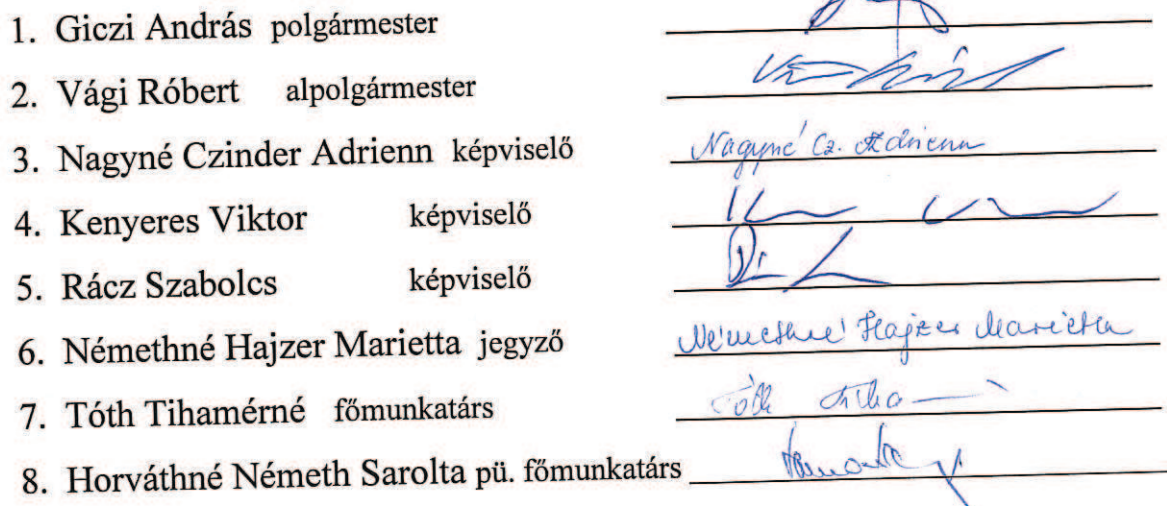 1. Giczi András polgármester
2. Vági Róbert alpolgármester
3. Nagyné Czinder Adrienn képviselő Nagyné Cz. Adrienn
4. Kenyeres Viktor képviselő
5. Rácz Szabolcs képviselő
6. Némethné Hajzer Marietta jegyző Némethné Hajzer Marietta
7. Tóth Tihamérné főmunkatárs Tóth
8. Horváthné Németh Sarolta pü. főmunkatárs